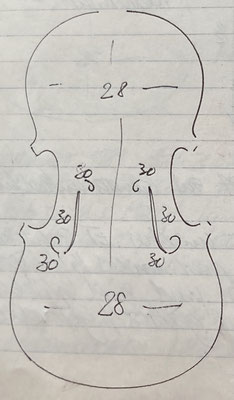 28
30 30
30 30
30 30
28